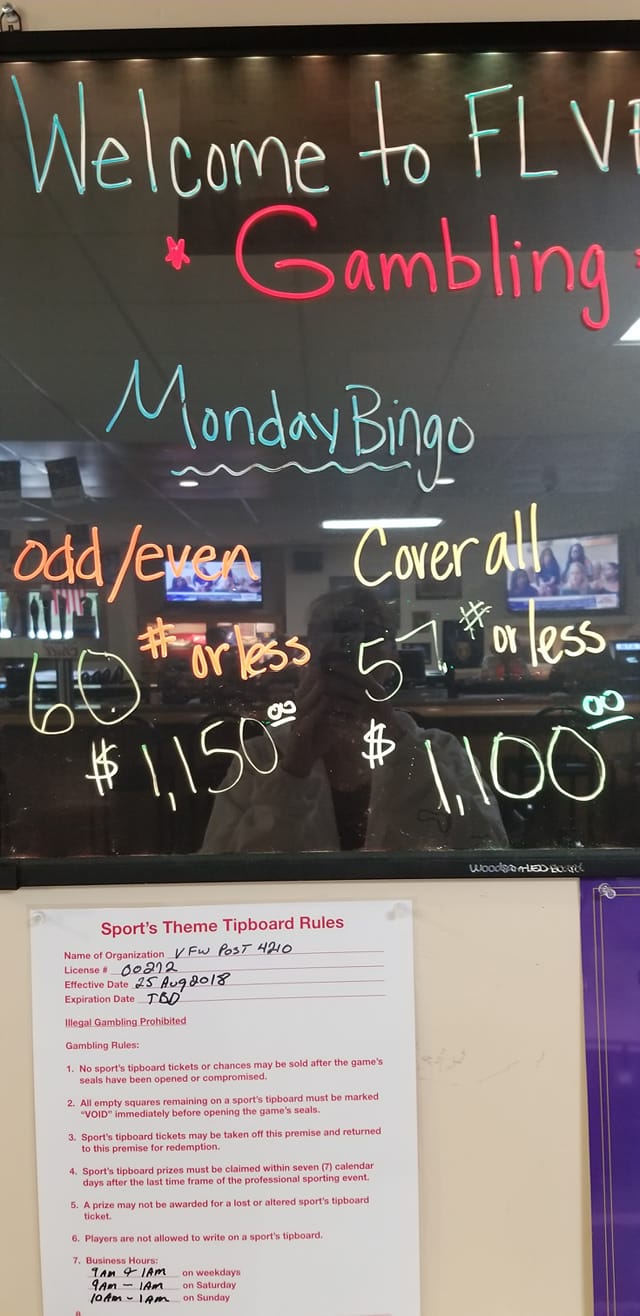 Welcome to FLV
* Gambling
Monday Bingo
odd/even
60 # or less
$1,150.00
Coverall
57 # or less
$1,100.00
Sport's Theme Tipboard Rules
Name of Organization VFW POST 4210
License # 00272
Effective Date 25 Aug 2018
Expiration Date TBD
Illegal Gambling Prohibited
Gambling Rules:
1. No sport's tipboard tickets or chances may be sold after the game's
seals have been opened or compromised.
2. All empty squares remaining on a sport's tipboard must be marked
"VOID" immediately before opening the game's seals.
3. Sport's tipboard tickets may be taken off this premise and returned
to this premise for redemption.
4. Sport's tipboard prizes must be claimed within seven (7) calendar
days after the last time frame of the professional sporting event.
5. A prize may not be awarded for a lost or altered sport's tipboard
ticket.
6. Players are not allowed to write on a sport's tipboard.
7. Business Hours:
9AM & 1AM on weekdays
9AM - 1AM on Saturday
10AM - 1AM on Sunday